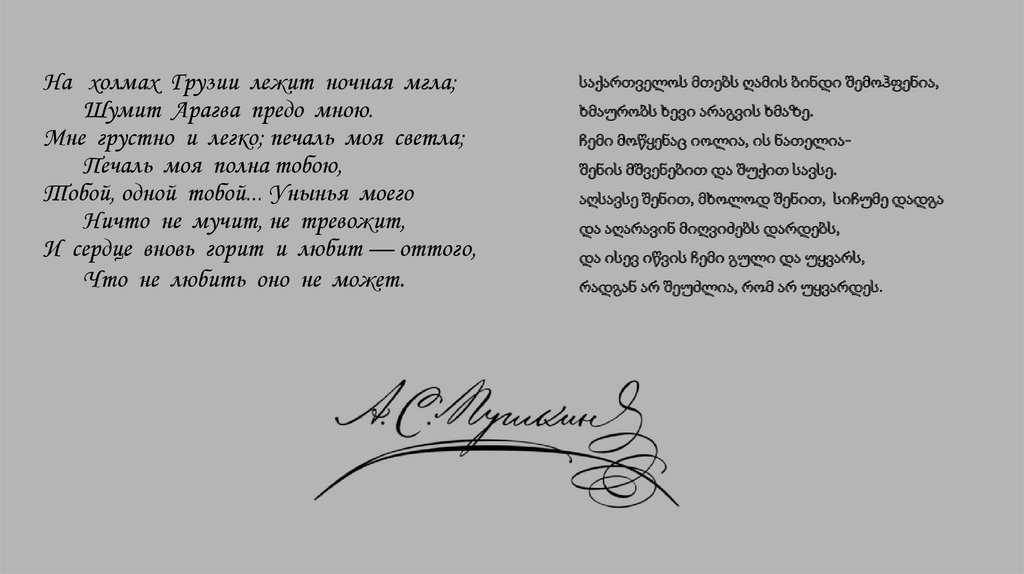 На холмах Грузии лежит ночная мгла;
Шумит Арагва предо мною.
Мне грустно и легко; печаль моя светла;
Печаль моя полна тобою,
Тобой, одной тобой... Унынья моего
Ничто не мучит, не тревожит,
И сердце вновь горит и любит — оттого,
Что не любить оно не может.
საქართველოს მთებს ღამის ბინდი შემოჰფენია,
ხმაურობს ხევი არაგვის ხმაზე.
ჩემი მოწყენაც იოლია, ის ნათელია-
შენის მშვენებით და შუქით სავსე.
აღსავსე შენით, მხოლოდ შენით, სიჩუმე დადგა
და აღარავინ მიღვიძებს დარდებს,
და ისევ იწვის ჩემი გული და უყვარს,
რადგან არ შეუძლია, რომ არ უყვარდეს.
А.С.Пушкинъ